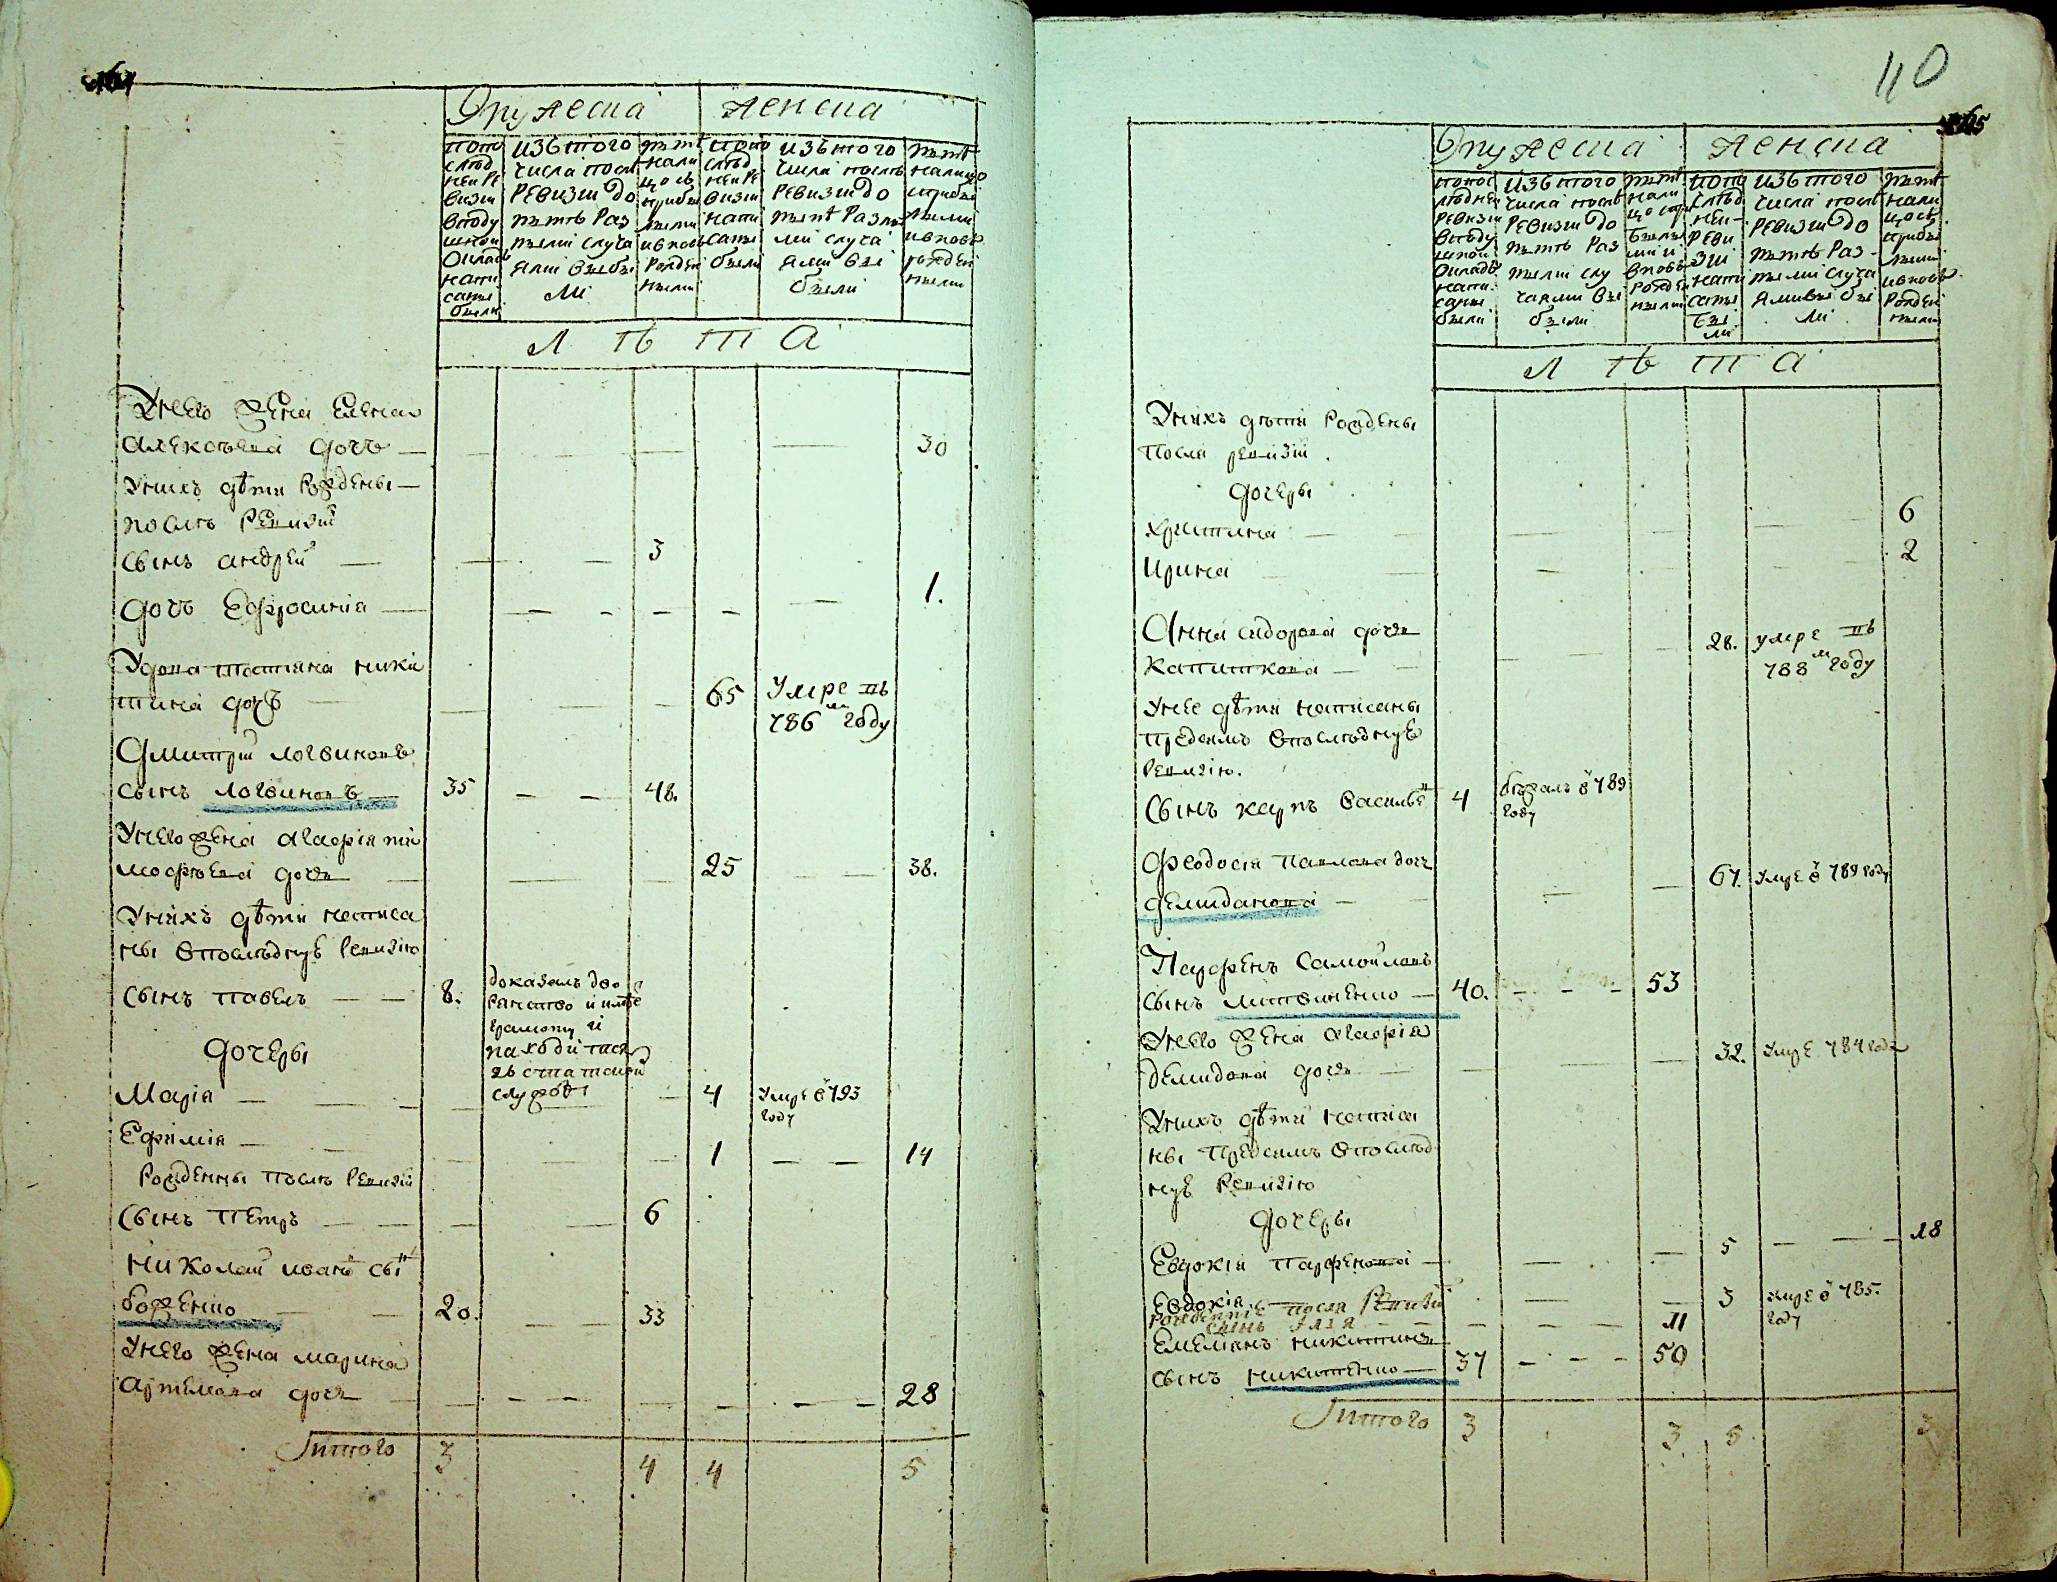 110
Мужеска
женска
попо
след
ней ре
визии
в поду
шной
оклад
напи
саны
были
изъ того
числа посл
ревизии до
ныне раз
ными случа
ями выбы
ли
ныне
нали
цо съ
прибы
лыми
и вновь
рожден
ными
попо
след
ней ре
визии
напи
саны
были
изъ того
числа после
ревизии до
ныне разны
ми случа
ями вы
были
ныне
налицо
с прибы
лыми
и вновь
рожден
ными
лѣта
У него жена Елена
Алексѣева дочь 30
У нихъ дѣти рождены
послѣ ревизіи
сынъ Андрей 3
дочь Ефросинія 1.
Вдова Татіяна Ники
тина дочь 65 умре въ
786 м году
Дмитрій Логвиновъ
сынъ Логвиновъ 35 48.
У него жена Агафія Ти
мофѣева дочь 25 38.
У нихъ дѣти написа
ны в последную ревизію
сынъ Павелъ 8. доказалъ дво
ранство и имѣе
грамоту и
находится
въ статской
службѣ
дочеры
Марія 4 умре в 793
году
Ефимія 1 14
рожденны послѣ ревизіи
сынъ Петръ 6
Николай Иванъ сы
Боженко 20. 33
У него жена Марина
Артемова дочь 28
Итого 3 4 4 5
Мужеска
женска
по пос
ледней
ревизи
в поду
шной
окладъ
напи
саны
были
изъ того
числа послѣ
ревизии до
ныне раз
ными слу
чаями вы
были
ныне
нали
цо с при
былы
ми и
вновь
рожден
ными
попо
след
ней
реви
зии
напи
саны
бы
ли
изъ того
числа посл
ревизии до
ныне раз
ными случа
ями вы бы
ли
ныне
нали
цо съ
прибы
лыми
и вновь
рожден
ными
лѣта
У нихъ дѣти рождены
после ревизіи
дочеры
Христина 6
Ирина 2
Анна Сидорова дочь
Капиткова 28. умре въ
788 м году
У нее дѣти написаны
предсимъ в последную
ревизію.
Сынъ Карпъ Василье 4 бежалъ в 789
году
Феодосія Павлова дочь 67. умре в 789 году
Демиданова
Парфенъ Самойловъ
сынъ Литвиненко 40. 53
У него жена Агафія
Демидова дочь 32. умре 784 года
У нихъ дѣти написа
ны предсимъ в послед
ную ревизію
дочеры
Евдокія Парфенова 5 18
Евдокія 3 умре в 785.
году
рожденные после ревизіи
сынъ Илія 11
Емеліянъ Никитинъ
сынъ Никитенко 37 50
Итого 3 3 5 3